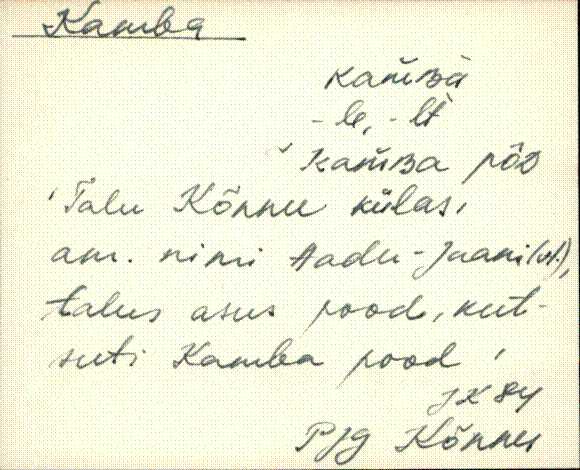 Kamba
kam̆ʙa
-le, -lt
kam̆ʙa pôᴅ
'Talu Kõnnu külas,
am. nimi Aadu-Jaani (vt.),
talus asus pood, kut-
suti Kamba pood'
JK 84
PJg Kõnnu